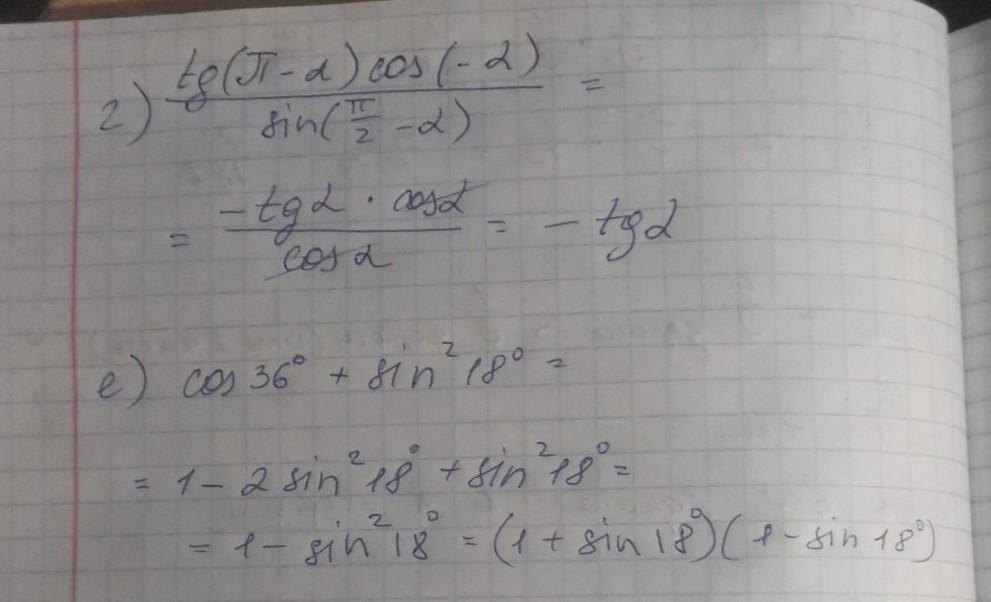 г) tg(π-α)cos(-α) / sin(π/2-α) =
= -tgα · cosα / cosα = - tgα
е) cos36° + sin²18° =
= 1 - 2sin²18° + sin²18° =
= 1 - sin²18° = (1 + sin18°)(1 - sin18°)